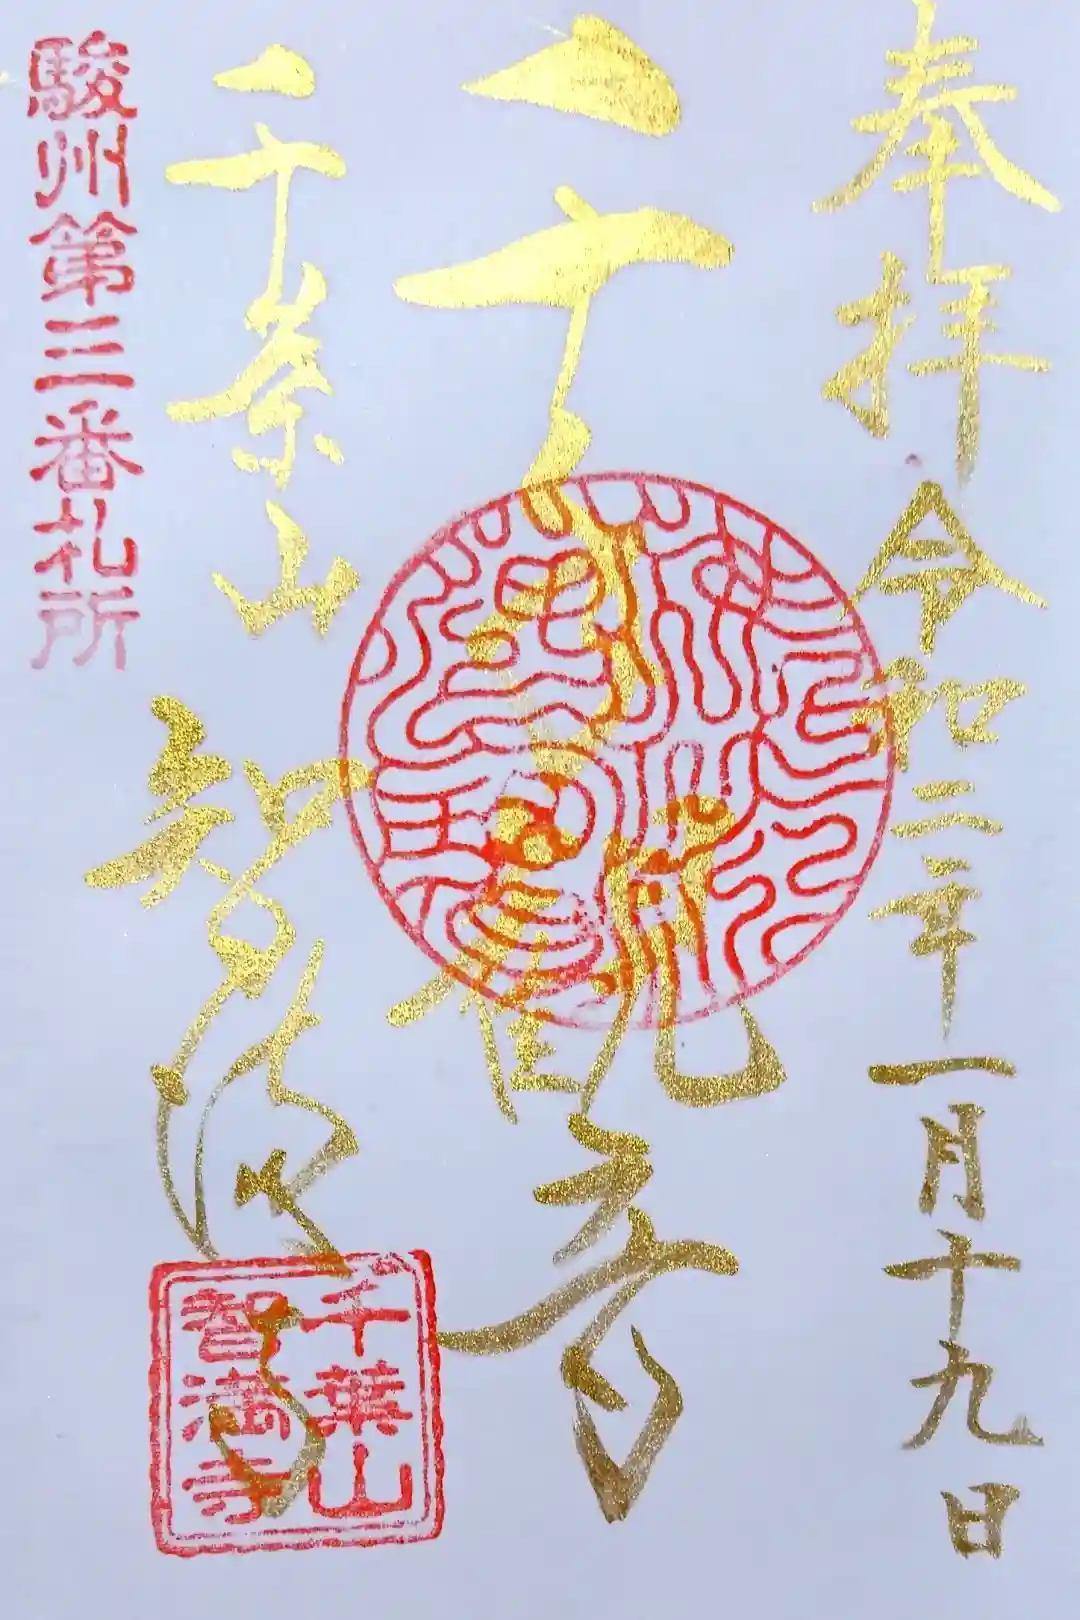 奉拝 令和三年一月十九日
千手観音
千葉山 智満寺
駿州第三番札所
千葉山
智満寺